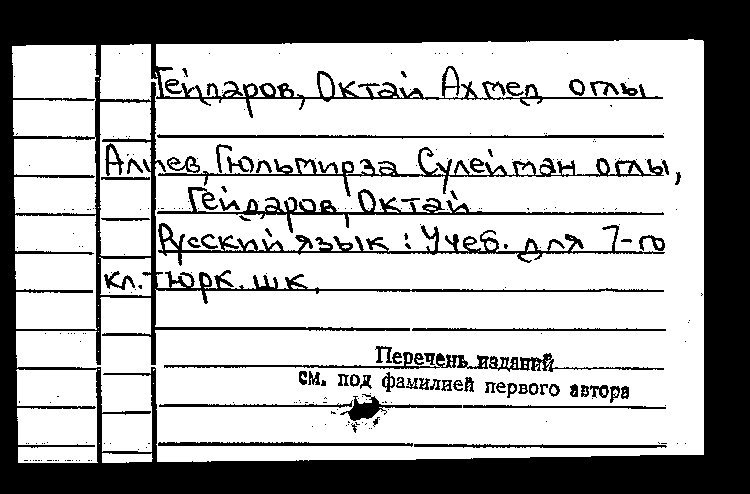 Гейдаров, Октай Ахмед оглы
Алиев, Гюльмирза Сулейман оглы,
Гейдаров, Октай
Русский язык : Учеб. для 7-го
кл. тюрк. шк.
Перечень изданий
см. под фамилией первого автора